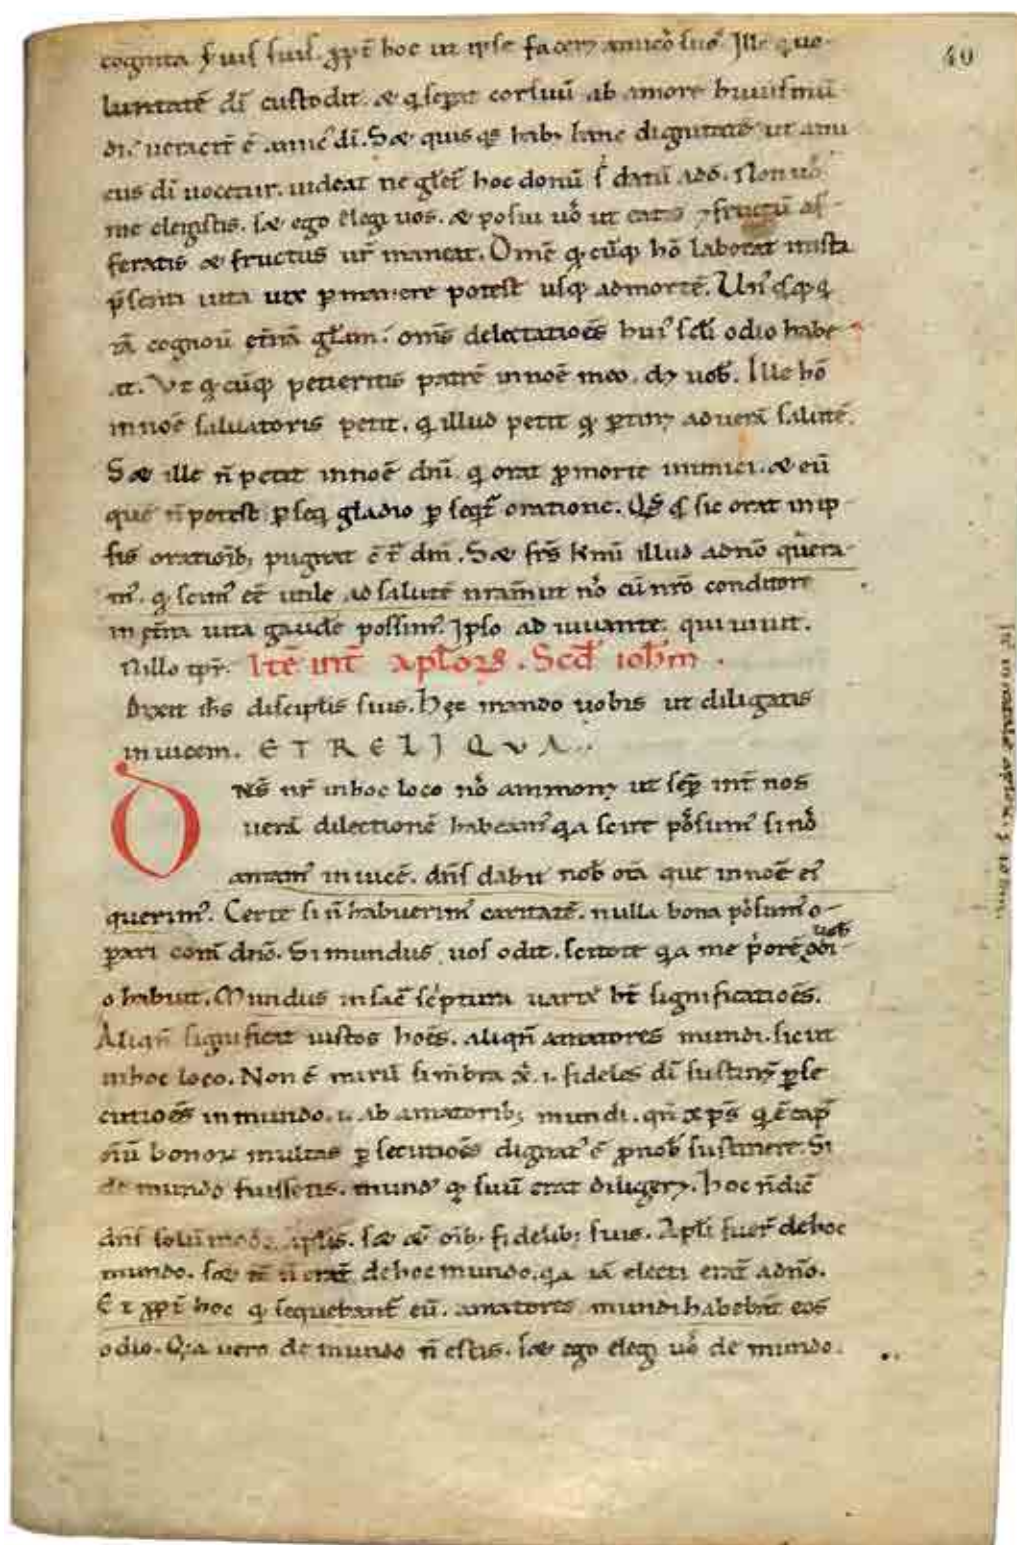 cognita seruis suis. ꝓpt̄ hoc ut ipse facerꝫ amicos suos. Ille q̇ uo-
luntatē dī custodit. & q̇ seꝑat cor suū ab amore huius mū-
di. ueracit̄ ē amic᷒ dī. S& quisq̇s habꝫ hanc dignitatē ut ami
cus dī uocetur. uideat ne hoc donū datū adō. Non uos
me elegistis. s& ego elegi uos. & posui uos ut eatis ⁊ fructū af-
feratis & fructus ur̄ maneat. Omē q̇cūqꝫ hō laborat inista
p̄senti uita uix ꝑmanere potest usqꝫ admortē. Un᷒q̇sqꝫ q̇
iā cognouit et̄nā gl̄am. om̄s delectatiōēs hui᷒ scl̄i odio habe-
at. Vt q̇cūqꝫ petieritis patrē innoē meo. dꝫ uob̄. Ille hō
innoē saluatoris petit. q̇ illud petit q̇ ꝑtinꝫ aduerā salutē.
S& ille n̄ petit innoē dn̄i q̇ orat ꝓmorte inimici. & eū
que n̄ potest ꝑseq̇ gladio ꝑseqt̄ oratione. Q̇s q̇ sic orat inip-
sis oratiōibꝫ pugnat ct̄ dn̄i. S& fr̄s k̄mi illud adnō quera-
m᷒. q̇ scim᷒ ee̅ utile adsalutē nram̄ ut nos cū nrō conditore
inet̄na uita gaudē possim᷒. Ipso adiuuante. qui uiuit.
Nillo tpr̄. Itē int̄ apl̄oꝝ. Scd̄ ioh̄m.
Dixit ih̄s discipl̄is suis. Hęc mando uobis ut diligatis
inuicem. ETRELIQVA.
Dn̄s nr̄ inhoc loco nos ammonꝫ ut sep̄ int̄ nos
uerā dilectionē habeam᷒ q̇a scire possum᷒ si nos
amam᷒ inuicē. dn̄s dabit nob̄ oīa que innoē ei᷒
querim᷒. Certe si n̄ habuerim᷒ caritatē. nulla bona possum᷒ o-
ꝑari corā dnō. Si mundus uos odit. scitote q̇a me p̓orē uob̄ odi-
o habuit. Mundus insac̄ sc̓ptura uarias ht̄ significatiōes.
Aliqn̄ significat iustos hoēs. aliqn̄ amatores mundi. sicut
inhoc loco. Non ē mirū si mēbra xp̄i .i. fideles dī sustinꝫ ꝑse
cutiōes inmundo. .i. ab amatoribꝫ mundi. qn̄ xp̄s q̇ ē cap̄
oīū bonoꝝ multas ꝑsecutiōes dignat᷒ ē ꝓnob̄ sustinere. Si
de mundo fuissetis. mund᷒ q̇ suū erat diligerꝫ. Hoc n̄ dic̄
dn̄s solūmodo apl̄is. s& & oībꝫ fidelibꝫ suis. Apl̄i fuer̄ dehoc
mundo. s& n̄ erat̄ dehoc mundo. q̇a iā electi erat̄ adnō.
Et ꝓpt̄ hoc q̇ sequebant̄ eū. amatores mundi habebāt eos
odio. Q̇a uero de mundo n̄ estis. s& ego elegi uos de mundo.
40